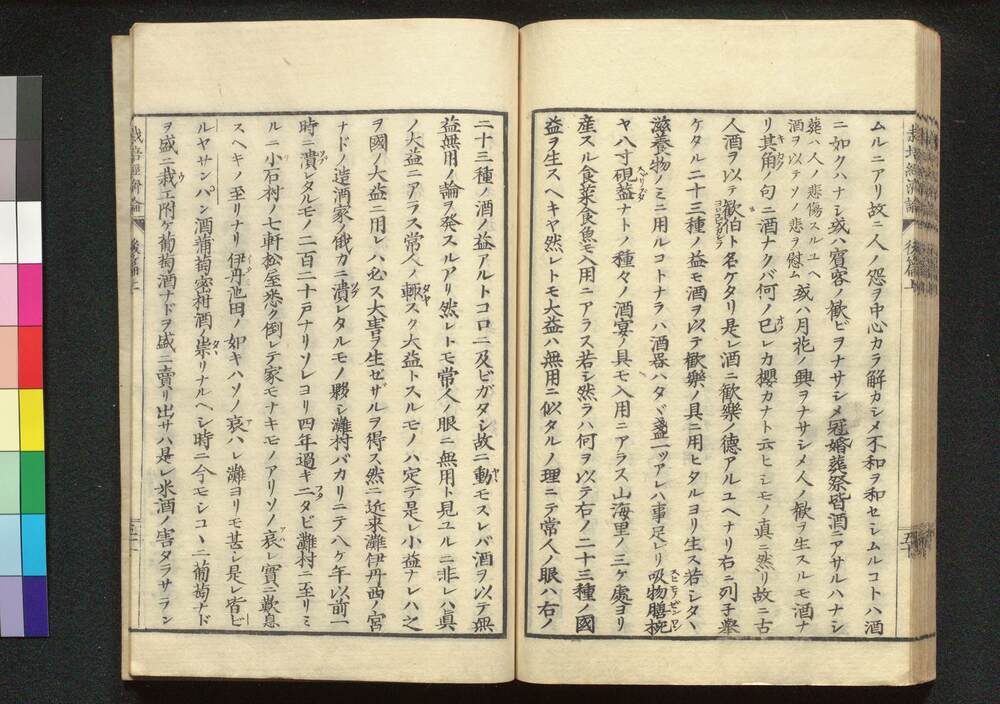 ムルニアリ故ニ人ノ怨ヲ中心カラ解カシメ不和ヲ和セシムルコトハ酒
ニ如クハナシ或ハ賓客ノ歓ビヲナサシメ冠婚葬祭皆酒ニアサルハナシ
葬ハ人ノ悲傷スルユヘ
酒ヲ以テソノ悲ヲ慰ム
或ハ月花ノ興ヲナサシメ人ノ歓ヲ生スルモ酒ナ
リ其角ノ句ニ酒ナクバ何ノ己レカ櫻カナト云ヒシモノ真ニ然リ故ニ古
人酒ヲ以テ歓伯ト名ケタリ是レ酒ニ歓樂ノ德アルユヘナリ右ニ列子挙
ケタル二十三種ノ益モ酒ヲ以テ歓樂ノ具ニ用ヒタルヨリ生ス若シタヾ
滋養物ノミニ用ルコトナラハ酒器ハタヾ盞一ツアレハ事足レリ吸物膳椀
ヤ八寸硯蓋ナトノ種々ノ酒宴ノ具モ入用ニアラス山海里ノ三ケ處ヨリ
産スル食菜食魚モ入用ニアラス若シ然ラハ何ヲ以テ右ノ二十三種ノ國
益ヲ生スヘキヤ然レトモ大益ハ無用ニ似タルノ理ニテ常人ノ眼ハ右ノ
二十三種ノ酒ノ益アルトコロニ及ビガタシ故ニ動モスレバ酒ヲ以テ無
益無用ノ論ヲ発スルアリ然レトモ常人ノ眼ニ無用ト見ユルニ非レハ眞
ノ大益ニアラス常人ノ輙スク大益トスルモノハ定テ是レ小益ナレハ之
ヲ國ノ大益ニ用レハ必ス大害ヲ生ゼザルヲ得ス然ニ近来灘伊丹西ノ宮
ナドノ造酒家ノ俄カニ潰レタルモノ夥シ灘村バカリニテ八ヶ年以前一
時ニ潰レタルモノ二百二十戸ナリソレヨリ四年過キ二タビ灘村ニ至リミ
ルニ小石村ノ七軒松屋悉ク倒レテ家モナキモノアリソノ哀レ實ニ歎息
スヘキノ至リナリ伊丹池田ノ如キハソノ哀ハレ灘ヨリモ甚シ是レ皆ビ
ルヤサンパン酒葡萄密柑酒ノ祟リナルヘシ時ニ今モシコヽニ葡萄ナド
ヲ盛ニ栽エ附ケ葡萄酒ナドヲ盛ニ賣リ出サハ是レ米酒ノ害タラサラン
栽培經濟論
後篇上